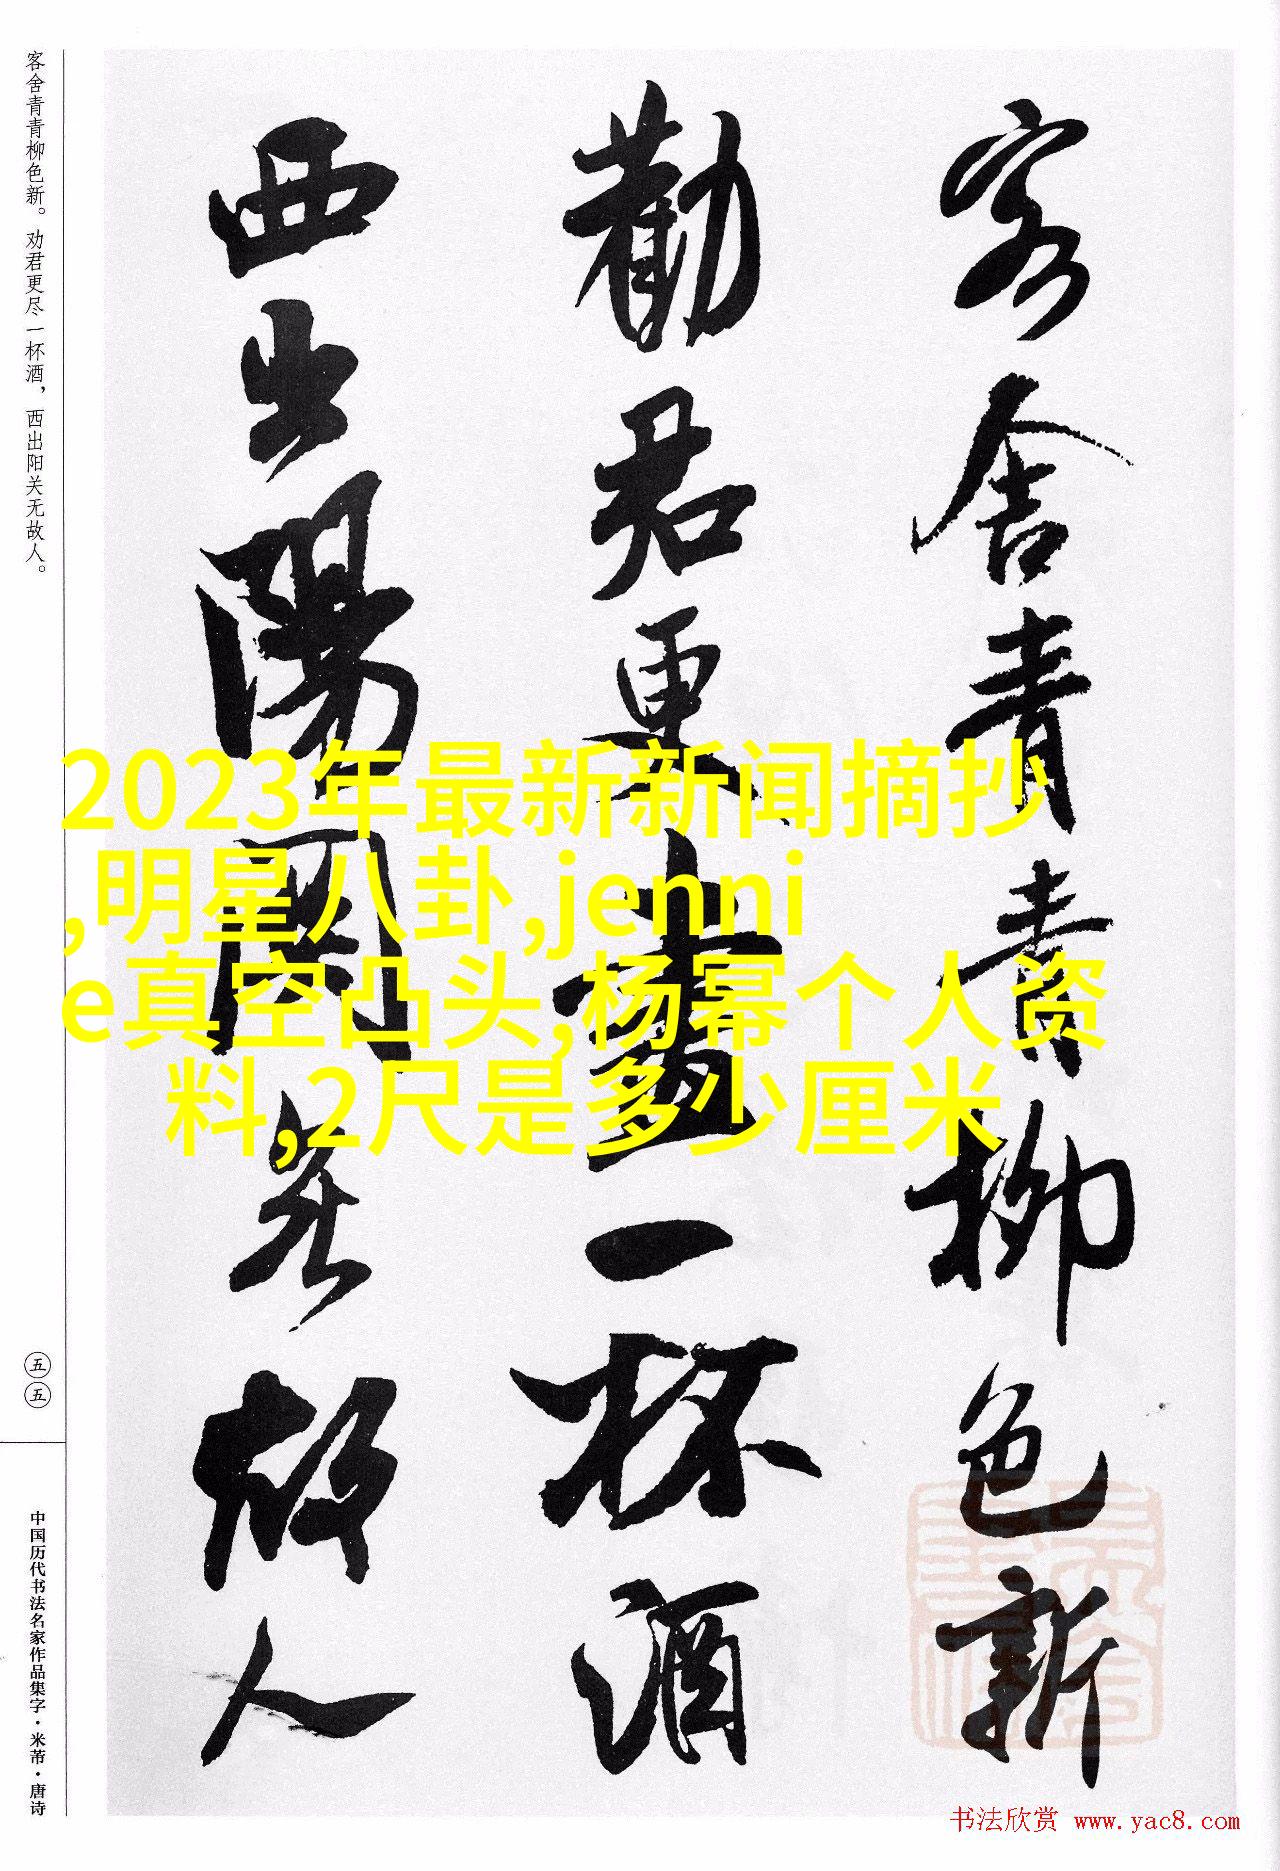 客舍青青柳色新
勸君更盡一杯酒
西出陽關無故人
客舍青青柳色新。劝君更尽一杯酒，西出阳关无故人。
五五
中国历代书法名家作品集字·米芾·唐诗
2023年最新新闻摘抄
,明星八卦,jenni
e真空凸头,杨幂个人资
料,2尺是多少厘米
书法欣赏 www.yac8.com